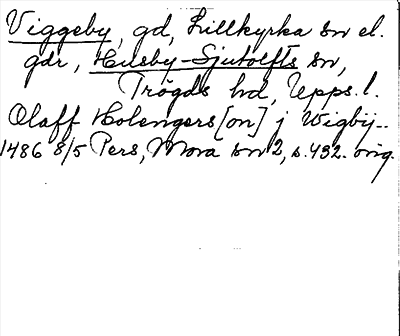 Viggeby, gd, Lillkyrka sn el.
gdr, Husby-Sjutolfts sn,
Trögds hd, Upps. l.
Olaff Holengers[on] j Wigbij..
1486 8/5 Pers, Mora sn 2, s. 432. orig.